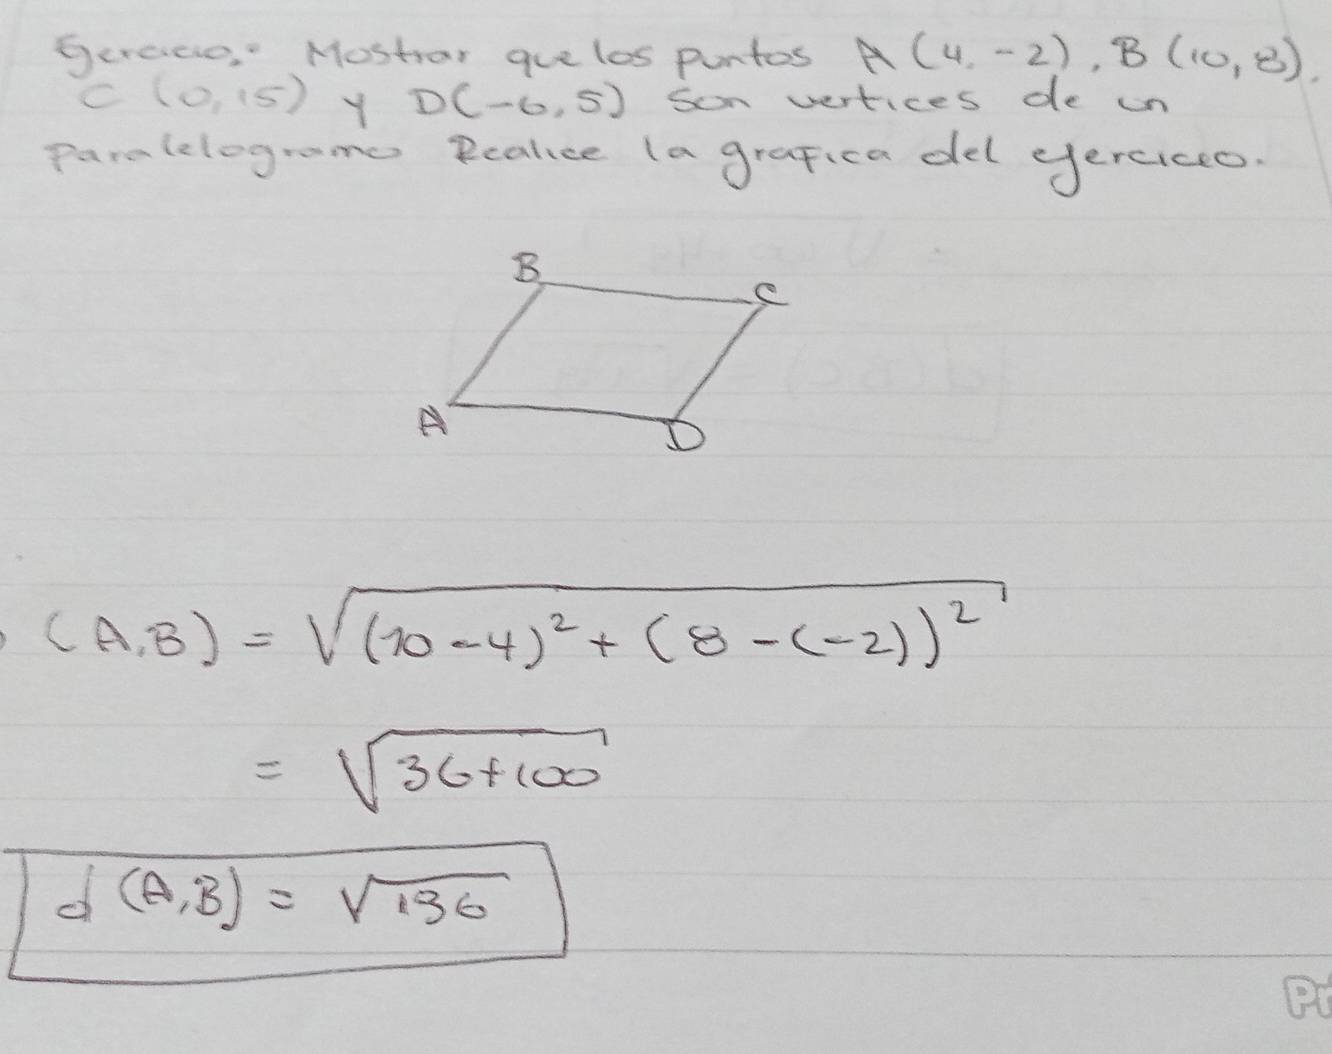 Ejercicio: Mostrar que los puntos A (4, -2), B (10, 8),
C (0, 15) y D(-6, 5) son vertices de un
Paralelogramo Realice la grafica del ejercicio.
B
C
A
D
(A,B) = √(10-4)² + (8-(-2))²
= √36+100
d (A,B) = √136